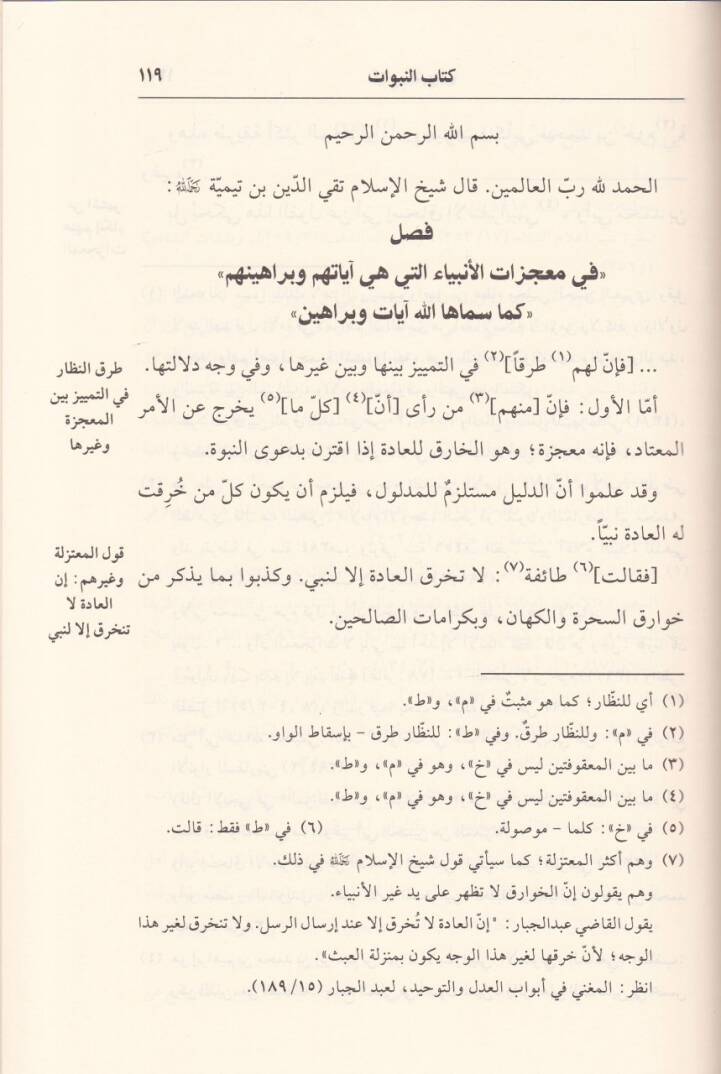 كتاب النبوات ١١٩
بسم الله الرحمن الرحيم
الحمد لله ربّ العالمين. قال شيخ الإسلام تقي الدّين بن تيميّة رَحِمَهُ اللهُ:
فصل
«في معجزات الأنبياء التي هي آياتهم وبراهينهم»
«كما سماها الله آيات وبراهين»
طرق النظار
في التمييز بين
المعجزة
وغيرها
... [فإنّ لهم(١) طرقاً](٢) في التمييز بينها وبين غيرها، وفي وجه دلالتها.
أمّا الأول: فإنّ [منهم](٣) من رأى [أنّ](٤) [كلّ ما](٥) يخرج عن الأمر
المعتاد، فإنه معجزة؛ وهو الخارق للعادة إذا اقترن بدعوى النبوة.
وقد علموا أنّ الدليل مستلزمٌ للمدلول، فيلزم أن يكون كلّ من خُرِقت
له العادة نبيّاً.
قول المعتزلة
وغيرهم: إن
العادة لا
تنخرق إلا لنبي
[فقالت](٦) طائفة(٧): لا تخرق العادة إلا لنبي. وكذبوا بما يذكر من
خوارق السحرة والكهان، وبكرامات الصالحين.
(١) أي للنظار؛ كما هو مثبتٌ في «م»، و«ط».
(٢) في «م»: وللنظار طرقٌ. وفي «ط»: للنظار طرق - بإسقاط الواو.
(٣) ما بين المعقوفتين ليس في «خ»، وهو في «م»، و«ط».
(٤) ما بين المعقوفتين ليس في «خ»، وهو في «م»، و«ط».
(٥) في «خ»: كلما - موصولة. (٦) في «ط» فقط: قالت.
(٧) وهم أكثر المعتزلة؛ كما سيأتي قول شيخ الإسلام رَحِمَهُ اللهُ في ذلك.
وهم يقولون إنّ الخوارق لا تظهر على يد غير الأنبياء.
يقول القاضي عبدالجبار: "إنّ العادة لا تُخرق إلا عند إرسال الرسل. ولا تنخرق لغير هذا
الوجه؛ لأنّ خرقها لغير هذا الوجه يكون بمنزلة العبث».
انظر: المغني في أبواب العدل والتوحيد، لعبد الجبار (١٥/ ١٨٩).